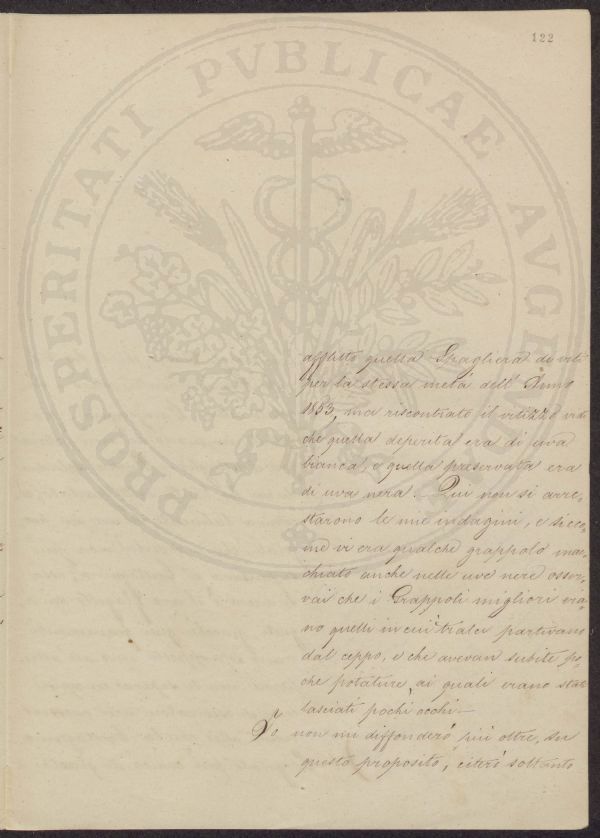 122
PROSPERITATI PVBLICAE AVGENDAE
afflitto quella Spagliera di viti
per la stessa metà dell' Anno
1853, ma riscontrato il vitizzo vidi
che quella deperita era di uva
bianca, e quella preservata era
di uva nera. Qui non si arre,
starono le mie indagini, e sicco,
me vi era qualche grappolo mac,
chiato anche nelle uve nere osser,
vai che i Grappoli migliori era,
no quelli in cui i tralci partivano
dal ceppo, e che avevan subite po,
che potature, ai quali erano stati
lasciati pochi occhi.—
Io non mi diffonderò più oltre su
questo proposito, citerò soltanto